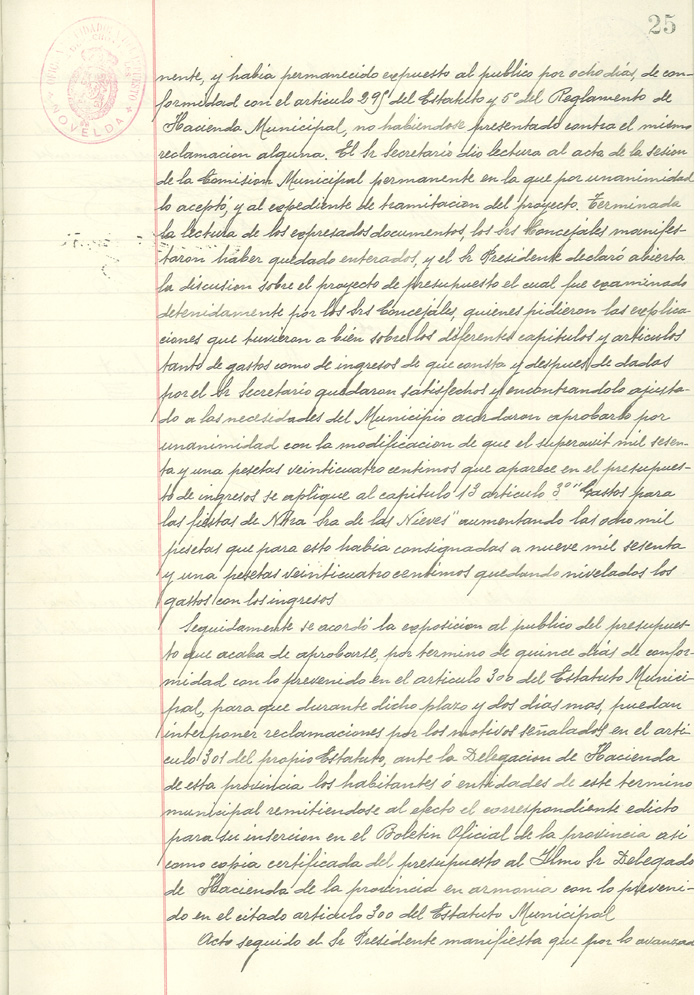 25
NOVELDA
nente, y habia permanecido expuesto al publico por ocho dias, de con-
formidad con el articulo 295 del Estatuto y 5º del Reglamento de
Hacienda Municipal, no habiendose presentado contra el mismo
reclamacion alguna. El Sr Secretario dio lectura al acta de la sesion
de la Comision Municipal permanente en la que por unanimidad
lo aceptó, y al expediente de tramitacion del proyecto. Terminada
la lectura de los expresados documentos, los Srs Concejales manifes-
taron haber quedado enterados, y el Sr Presidente declaró abierta
la discusion sobre el proyecto de presupuesto el cual fue examinado
detenidamente por los Srs Concejales, quienes pidieron las explica-
ciones que tuvieron a bien sobre los diferentes capitulos y articulos
tanto de gastos como de ingresos de que consta y despues de dadas
por el Sr Secretario quedaron satisfechos y encontrandolo ajusta-
do a las necesidades del Municipio acordaron aprobarlo por
unanimidad con la modificacion de que el superavit mil sesen-
ta y una pesetas veinticuatro centimos que aparece en el presupues-
to de ingresos se aplique al capitulo 13 articulo 3º "Gastos para
las fiestas de Ntra Sra de las Nieves" aumentando las ocho mil
pesetas que para esto habia consignadas a nueve mil sesenta
y una pesetas veinticuatro centimos quedando nivelados los
gastos con los ingresos
Seguidamente se acordó la exposicion al publico del presupues-
to que acaba de aprobarse, por termino de quince dias de confor-
midad con lo prevenido en el articulo 300 del Estatuto Munici-
pal, para que durante dicho plazo y dos dias mas, puedan
interponer reclamaciones por los motivos señalados en el arti-
culo 301 del propio Estatuto, ante la Delegacion de Hacienda
de esta provincia los habitantes ó entidades de este termino
municipal remitiendose al efecto el correspondiente edicto
para su insercion en el Boletin Oficial de la provincia asi
como copia certificada del presupuesto al Ilmo Sr Delegado
de Hacienda de la provincia en armonia con lo preveni-
do en el citado articulo 300 del Estatuto Municipal
Acto seguido el Sr Presidente manifiesta que por lo avanzad